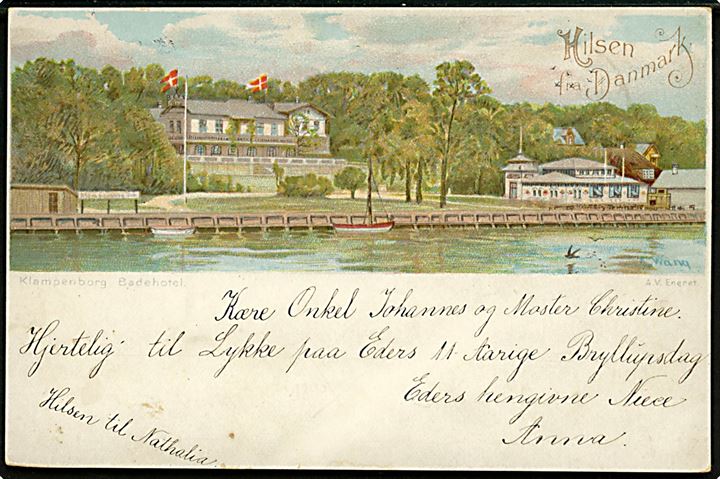 Hilsen
fra Danmark
Wang
Klampenborg Badehotel.
A.V. Eneret.
Kære Onkel Johannes og Moster Christine.
Hjertelig til Lykke paa Eders 11 Aarige Bryllupsdag
Eders hengivne Niece
Anna.
Hilsen til Nathalia.